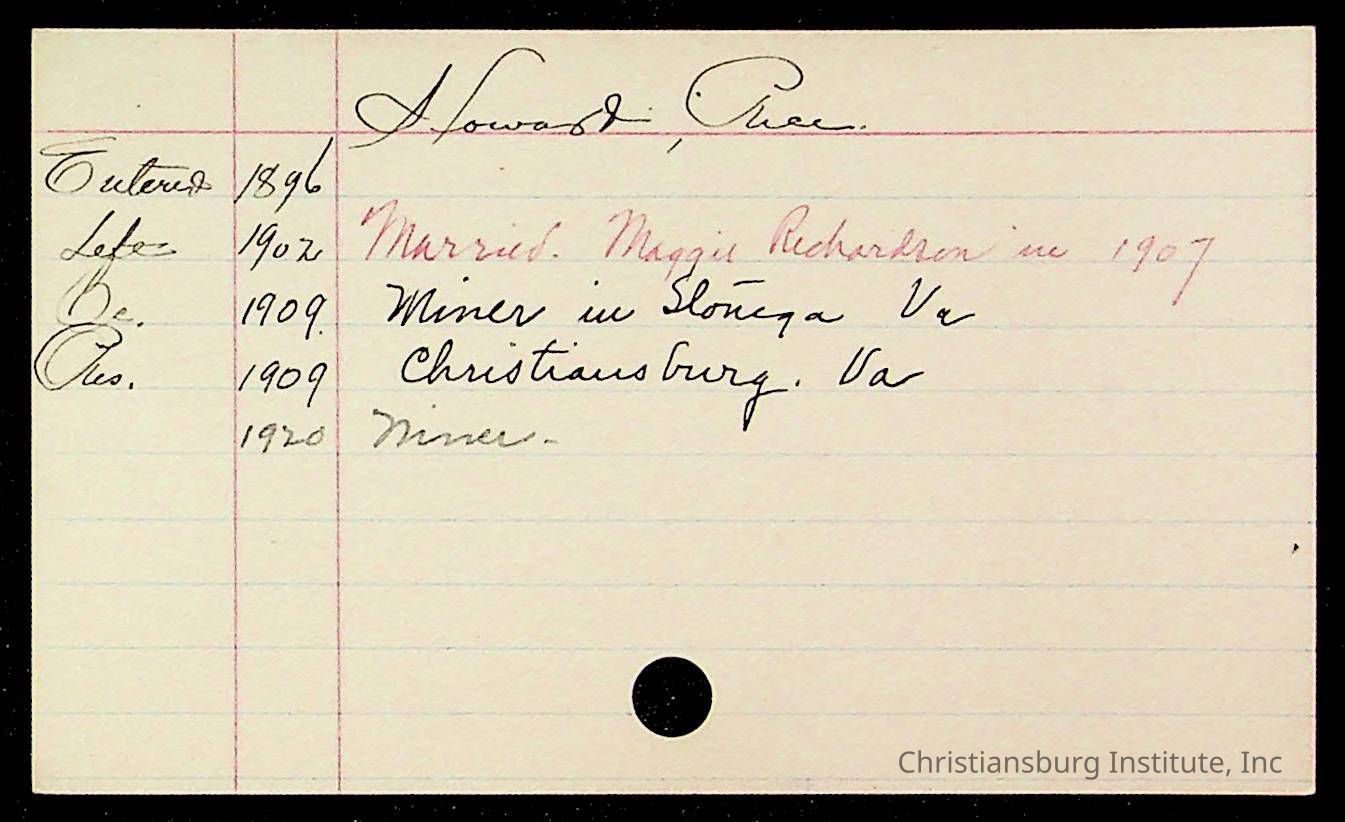 Howard, Rhee.
Entered 1896
Left 1902 Married. Maggie Richardson in 1907
Oc. 1909. Miner in Stonega Va
Res. 1909 Christiansburg. Va
1920 Miner -
Christiansburg Institute, Inc